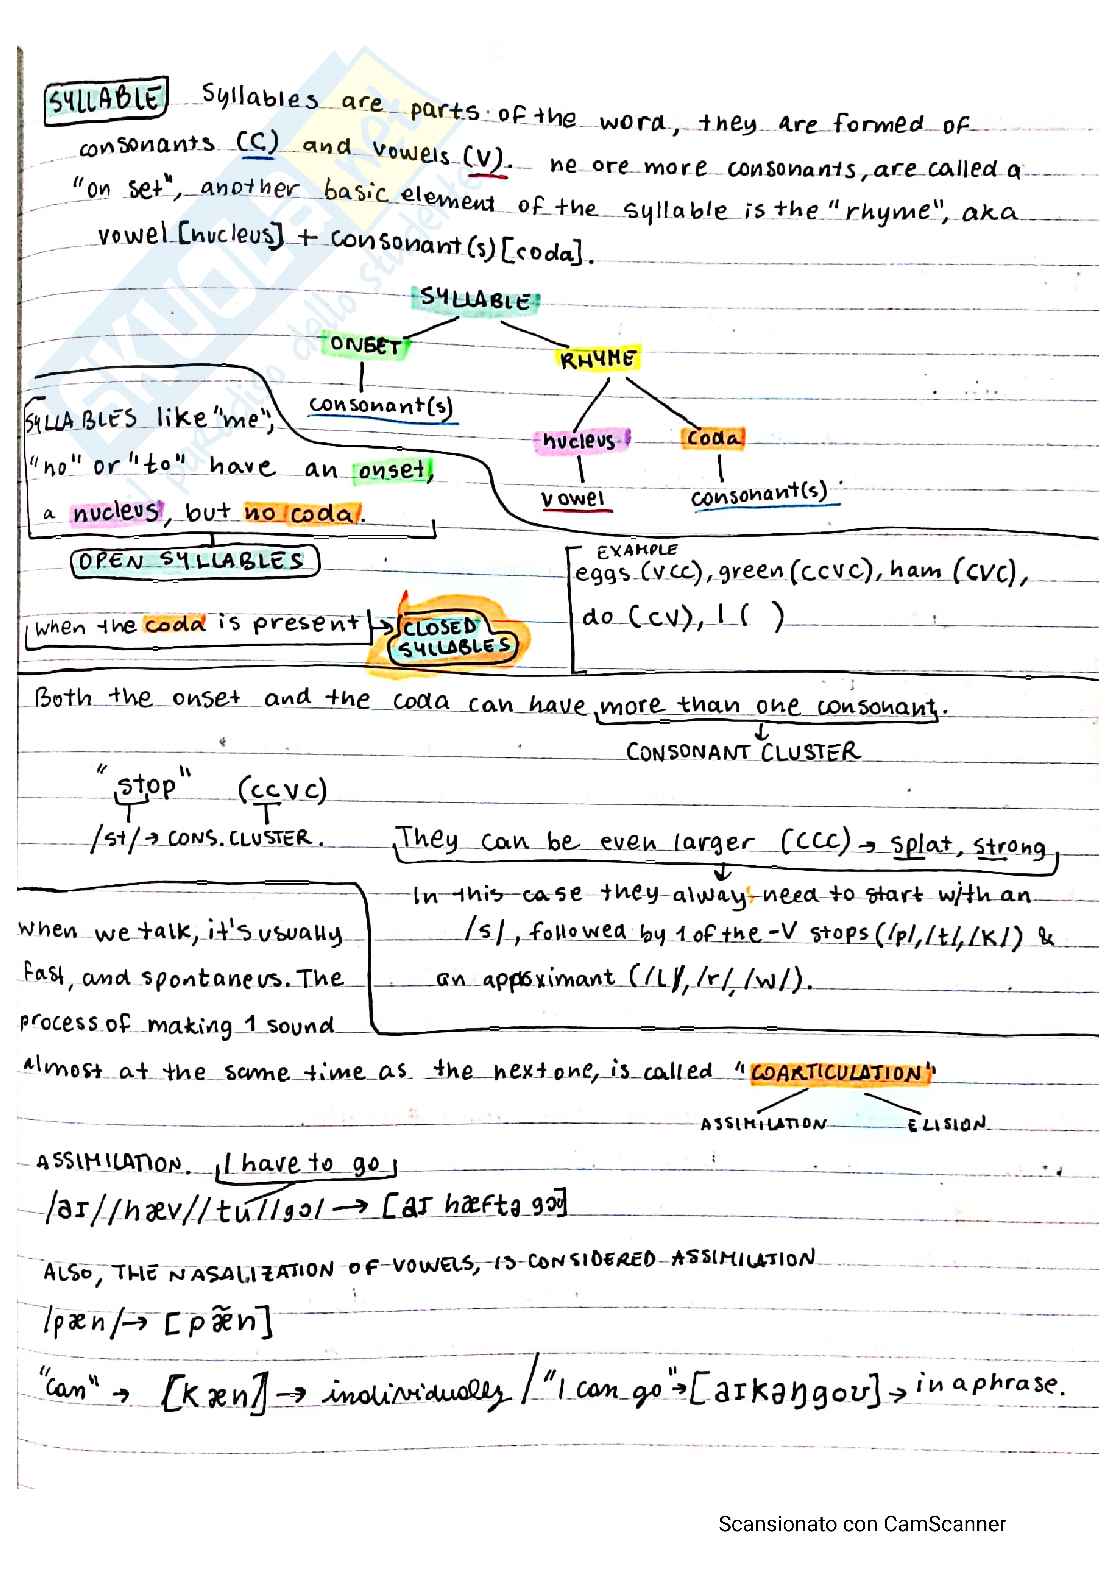 SYLLABLE Syllables are parts of the word, they are formed of
consonants (C) and vowels (V). ne ore more consonants, are called a
"on set", another basic element of the syllable is the "rhyme", aka
vowel [nucleus] + consonant(s) [coda].
SYLLABLE
ONSET
RHYME
consonant(s)
nucleus
coda
vowel
consonant(s)
SYLLABLES like "me",
"no" or "to" have an onset,
a nucleus, but no coda.
OPEN SYLLABLES
when the coda is present → CLOSED
SYLLABLES
EXAMPLE
eggs (VCC), green (CCVC), ham (CVC),
do (CV), I ( )
Both the onset and the coda can have more than one consonant.
CONSONANT CLUSTER
"stop" (CCVC)
/st/ → CONS. CLUSTER.
They can be even larger (CCC) → splat, strong
In this case they always need to start with an
/s/, followed by 1 of the -V stops (/p/, /t/, /k/) &
an apposximant (/L/, /r/, /w/).
When we talk, it's usually
fast, and spontaneus. The
process of making 1 sound
almost at the same time as the next one, is called "COARTICULATION"
ASSIMILATION ELISION
ASSIMILATION. I have to go
/aɪ//hæv//tu//gɔ/ → [aɪ hæftə gɔʊ]
ALSO, THE NASALIZATION OF VOWELS, IS CONSIDERED ASSIMILATION
/pæn/ → [pæ̃n]
"can" → [kæn] → individually / "I can go" → [aɪkəŋgoʊ] → in a phrase.
SKUOLA.net
il paradiso dello studente
Scansionato con CamScanner